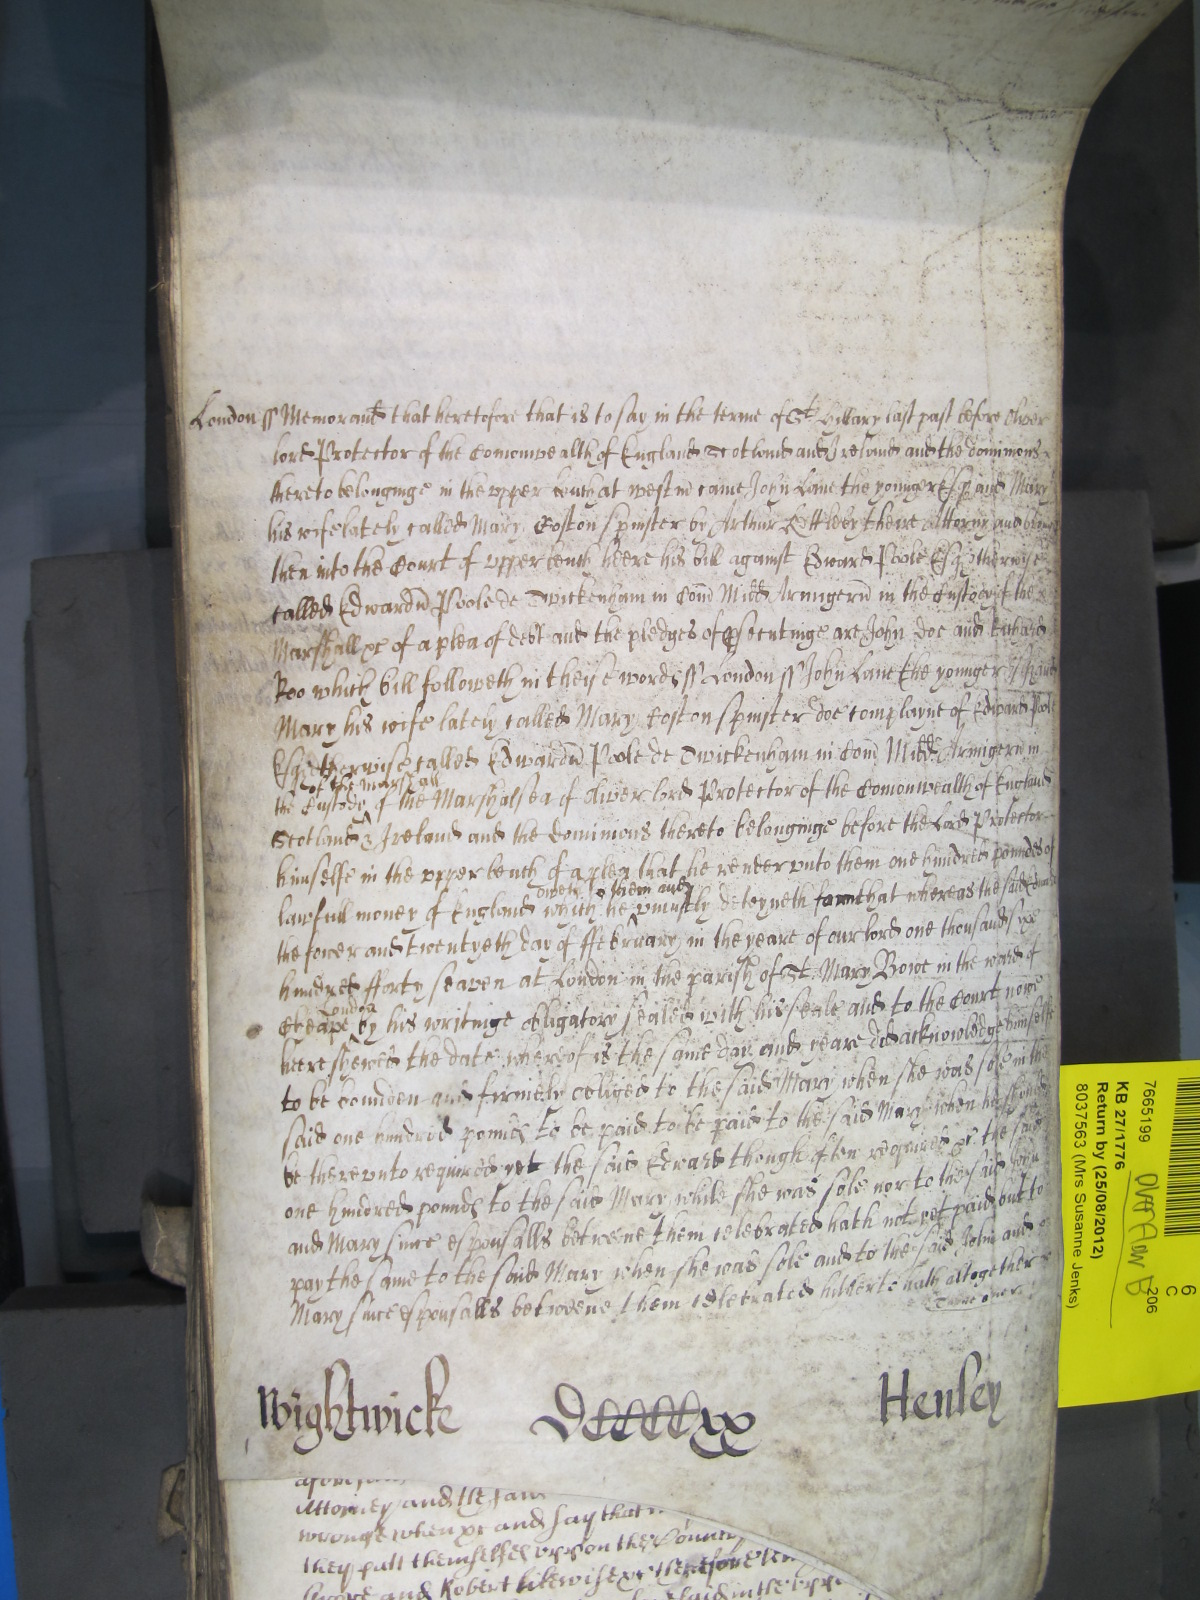 London ss Memorand that heretofore that is to say in the terme of St. Hillary last past before Oliver
lord Protector of the Comonwealth of England Scotland and Ireland and the dominions
thereto belonginge in the vpper bench at westm came John Lane the younger Esq and Mary
his wife lately called Mary Coston spinster by Arthur Ettleby theire Attorny and
then into the Court of vpper bench heere his bill against Edward Poole Esq otherwise
called Edwardu Poole de Twickenham in Com Midd Armigeru in the Custody of the
Marshall &c of a plea of debt and the pledges of psecutinge are John doe and Richard
Roo which bill followeth in theise words ss London ss John Lane the younger
Mary his wife lately called Mary Coston spinster doe complayne of Edward Poole
Esq otherwise called Edwardu Poole de Twickenham in Com Midd Armigeru in
of the marshall
the Custody of the Marshalsea of Oliver lord Protector of the Comonwealth of England
Scotland & Ireland and the dominions thereto belonginge before the Lord Protector
himselfe in the vpper bench of a plea that he render vnto them one hundred poundes of
oweth to them and
lawfull money of England which he vniustly deteyneth for that whereas the said
the fower and twentyeth day of ffebruary in the yeare of our lord one thousand six
hundred fforty seaven at London in the parish of St. Mary Bowe in the ward of
London
Cheape by his writinge obligatory sealed with his seale and to the Court nowe
heere shewed the date whereof is the same day and yeare did acknowledge himselfe
to be bounden and firmely obliged to the said Mary when she was sole in the
said one hundred pounds to be paid to be paid to the said Mary when he should
be therevnto required yet the said Edward though often required &c the said
one hundred pounds to the said Mary while she was sole nor to the said John
and Mary since espousalls betweene them celebrated hath not yet paid but to
pay the same to the said Mary when she was sole and to the said John and
Mary since espousalls betweene them celebrated hitherto hath altogether
Wightwicke DCCCCxx Henley
Attorney and the
wronge when &c and say that
they putt themselves vpon the Country
and Robert likewise &c therefore
7665199
KB 27/1776
Return by (25/08/2012)
8037563 (Mrs Susanne Jenks)
206
C
6